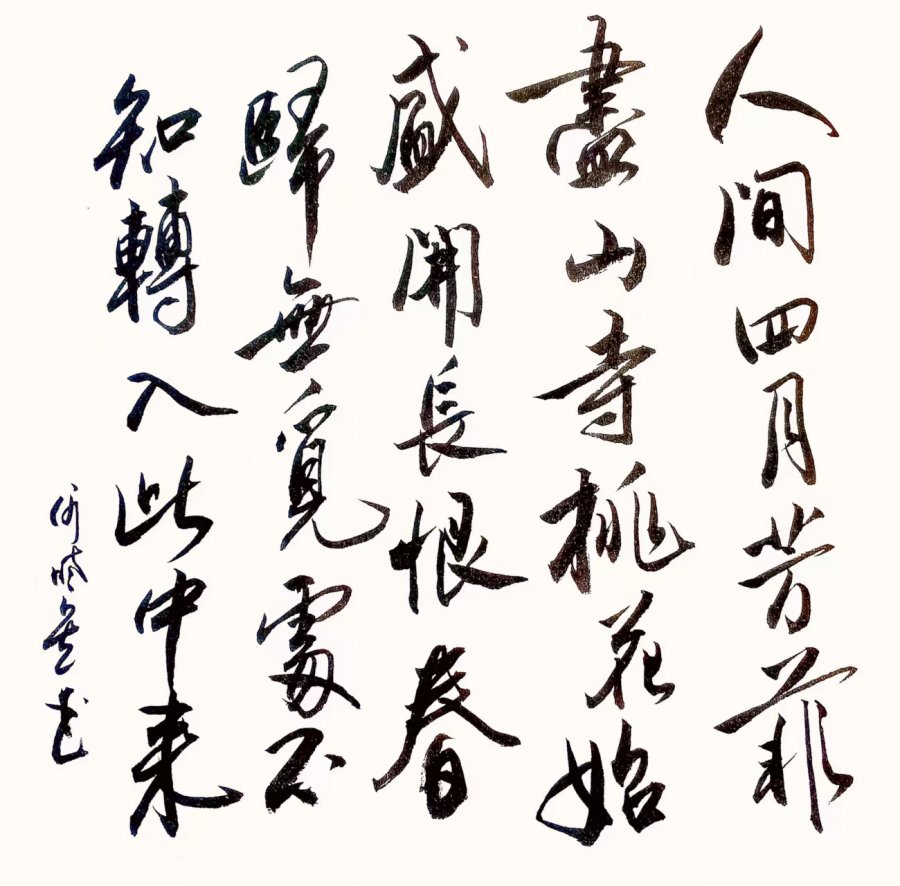 人間四月芳菲
盡山寺桃花始
盛開長恨春
歸無覓處不
知轉入此中来